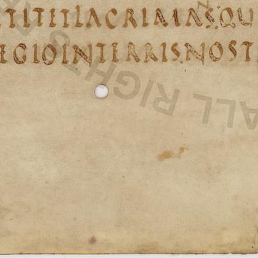 TITETLACRIMANSQU
EGIOINTERRISNOST
ALL RIGHTS